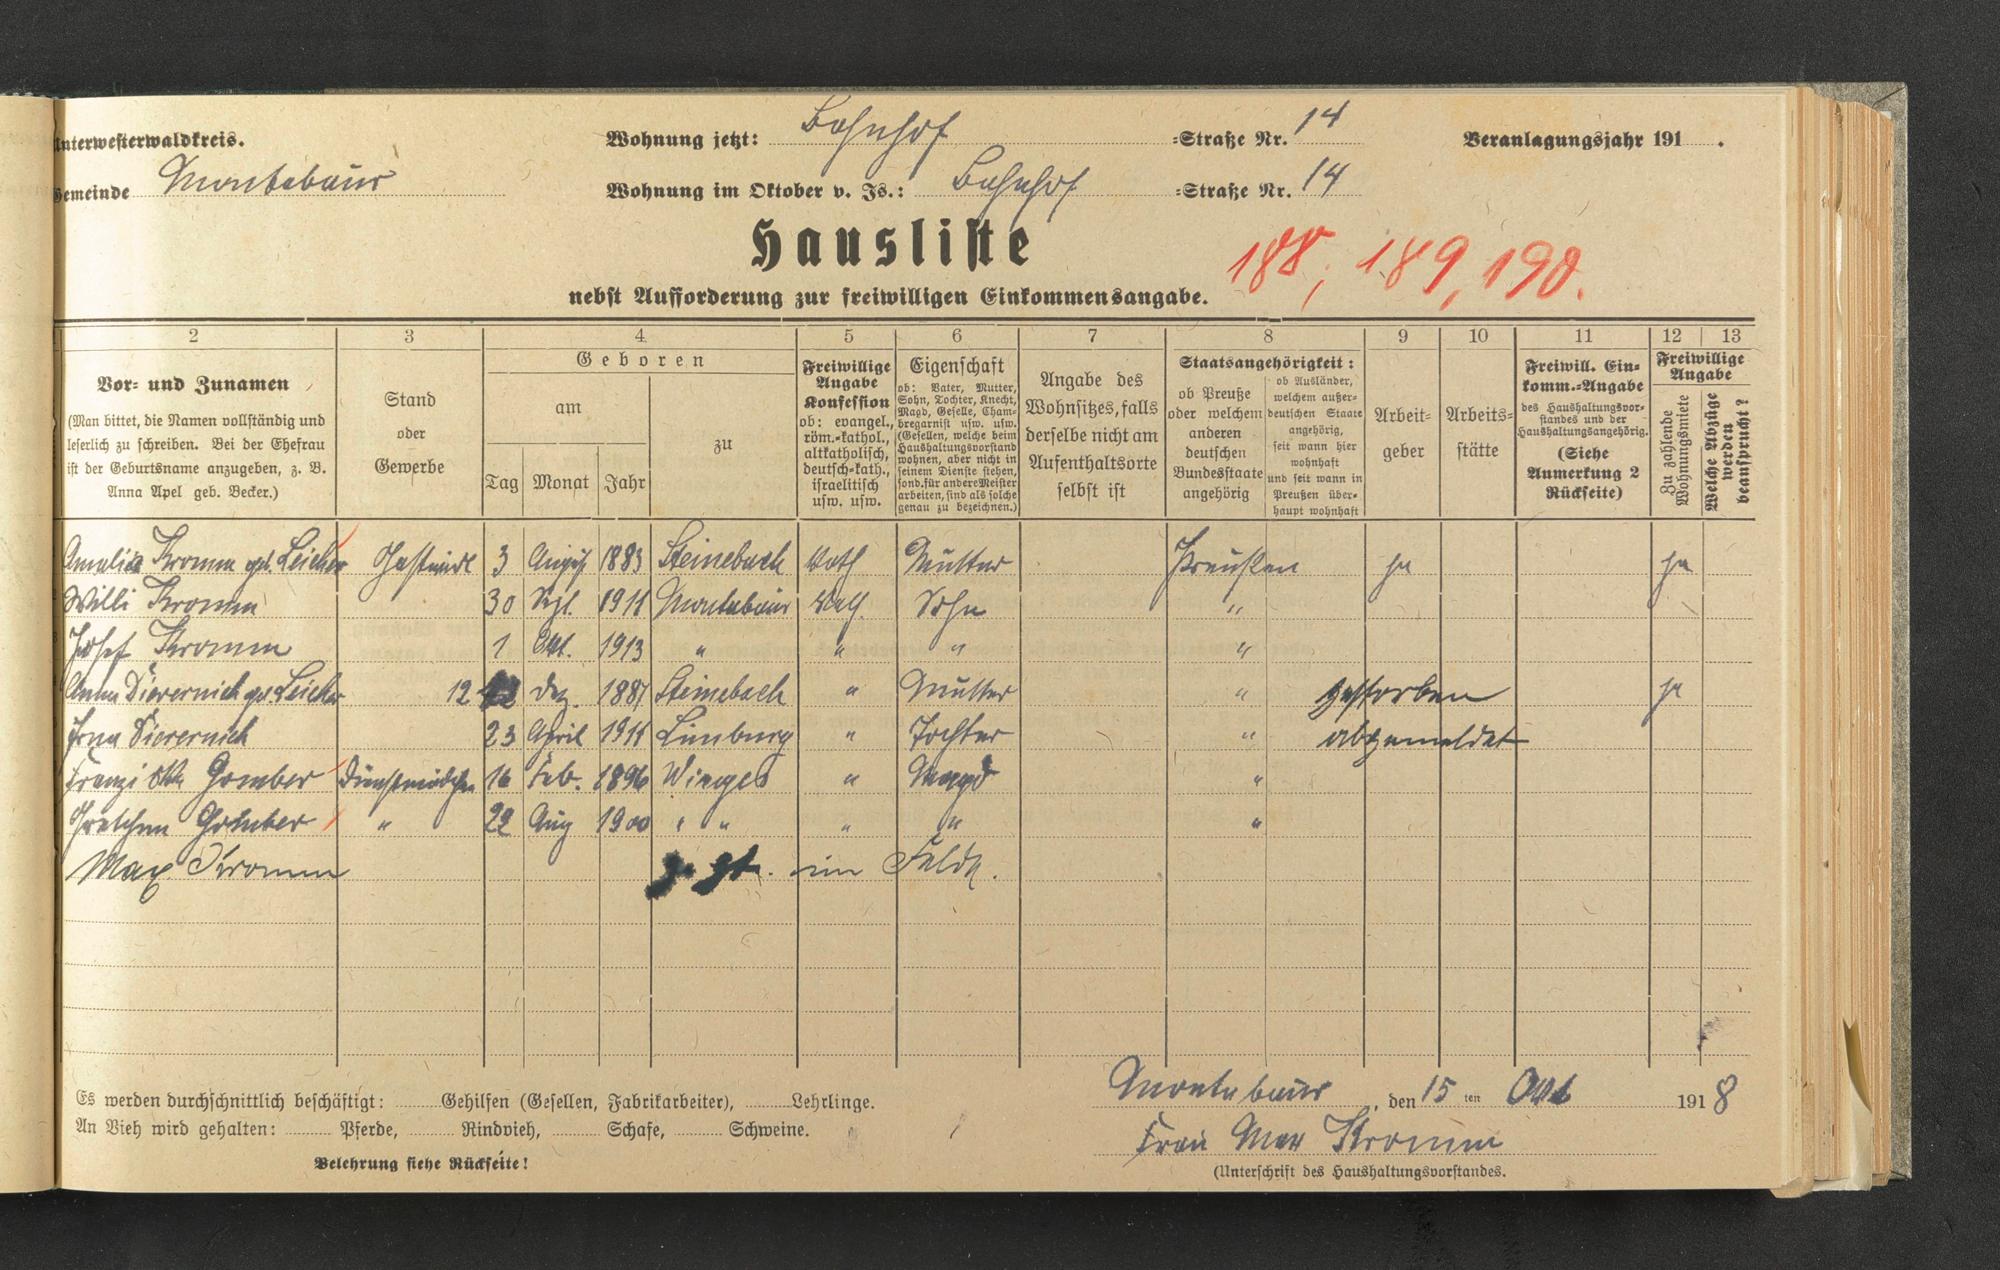 Unterwesterwaldkreis. Wohnung jetzt: Bahnhof =Straße Nr. 14 Veranlagungsjahr 191 .
Gemeinde Montabaur Wohnung im Oktober v. Js.: Bahnhof =Straße Nr. 14
Hausliste
188, 189, 190.
nebst Aufforderung zur freiwilligen Einkommensangabe.
2 3 4 5 6 7 8 9 10 11 12 13
Vor- und Zunamen
(Man bittet, die Namen vollständig und
leserlich zu schreiben. Bei der Ehefrau
ist der Geburtsname anzugeben, z. B.
Anna Apel geb. Becker.)
Stand
oder
Gewerbe
Geboren
am
Tag Monat Jahr
zu
Freiwillige
Angabe
Konfession
ob: evangel.,
röm.-kathol.,
altkatholisch,
deutsch-kath.,
israelitisch
usw. usw.
Eigenschaft
ob: Vater, Mutter,
Sohn, Tochter, Knecht,
Magd, Geselle, Cham-
bregarnist usw. usw.
(Gesellen, welche beim
Haushaltungsvorstand
wohnen, aber nicht in
seinem Dienste stehen,
sond. für andere Meister
arbeiten, sind als solche
genau zu bezeichnen.)
Angabe des
Wohnsitzes, falls
derselbe nicht am
Aufenthaltsorte
selbst ist
Staatsangehörigkeit:
ob Preuße
oder welchem
anderen
deutschen
Bundesstaate
angehörig
ob Ausländer,
welchem außer-
deutschen Staate
angehörig,
seit wann hier
wohnhaft
und seit wann in
Preußen über-
haupt wohnhaft
Arbeit-
geber
Arbeits-
stätte
Freiwill. Ein-
komm.-Angabe
des Haushaltungsvor-
standes und der
Haushaltungsangehörig.
(Siehe
Anmerkung 2
Rückseite)
Freiwillige
Angabe
Zu zahlende
Wohnungsmiete
Welche Abzüge
werden
beansprucht?
Amalia Kromm geb. Leicher Gastwirt 3 August 1883 Steinebach Kath Mutter Preußen ja ja
Willi Kromm 30 Sept. 1911 Montabaur Kath. Sohn "
Josef Kromm 1 Okt. 1913 " " " "
Anna Sievernich geb. Leicher 12 Dez. 1887 Steinebach " Mutter " gestorben ja
Irma Sievernich 23 April 1911 Limburg " Tochter " abgemeldet
Gomber Dienstmädchen 16 Feb. 1896 Winges " Magd "
Gretchen Gomber " 22 Aug 1900 " " " " "
Max Kromm z. Zt. im Felde.
Es werden durchschnittlich beschäftigt: Gehilfen (Gesellen, Fabrikarbeiter), Lehrlinge.
An Vieh wird gehalten: Pferde, Rindvieh, Schafe, Schweine.
Belehrung siehe Rückseite!
Montabaur, den 15 ten Okt 1918
Frau Max Kromm
(Unterschrift des Haushaltungsvorstandes.